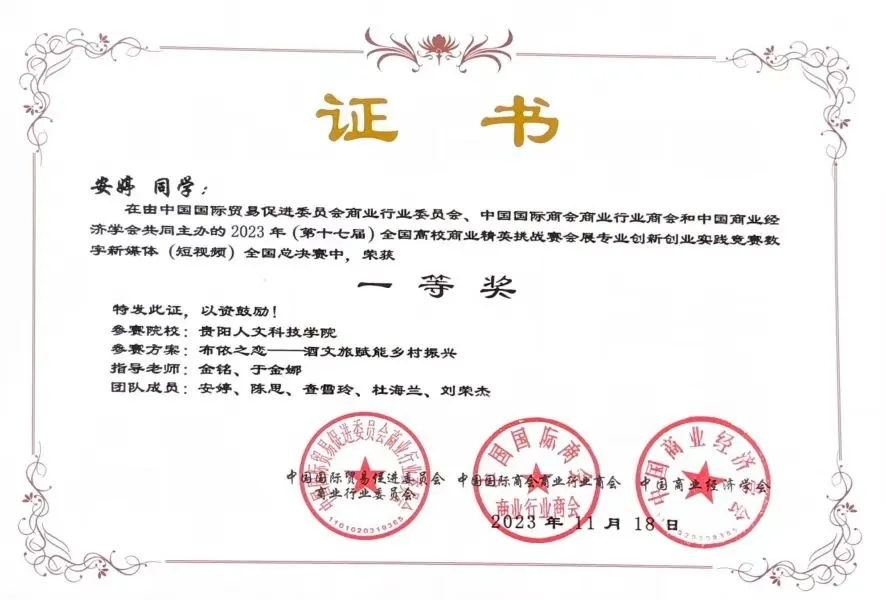 证 书
安婷 同学：
在由中国国际贸易促进委员会商业行业委员会、中国国际商会商业行业商会和中国商业经
济学会共同主办的 2023 年（第十七届）全国高校商业精英挑战赛会展专业创新创业实践竞赛数
字新媒体（短视频）全国总决赛中，荣获
一 等 奖
特发此证，以资鼓励！
参赛院校：贵阳人文科技学院
参赛方案：布依之恋——酒文旅赋能乡村振兴
指导老师：金铭、于金娜
团队成员：安婷、陈思、查雪玲、杜海兰、刘荣杰
中国国际贸易促进委员会商业行业委员会
1101020319385
中国国际商会
商业行业商会
中国商业经济学会
中国国际贸易促进委员会 中国国际商会商业行业商会 中国商业经济学会
商业行业委员会
2023 年 11 月 18 日